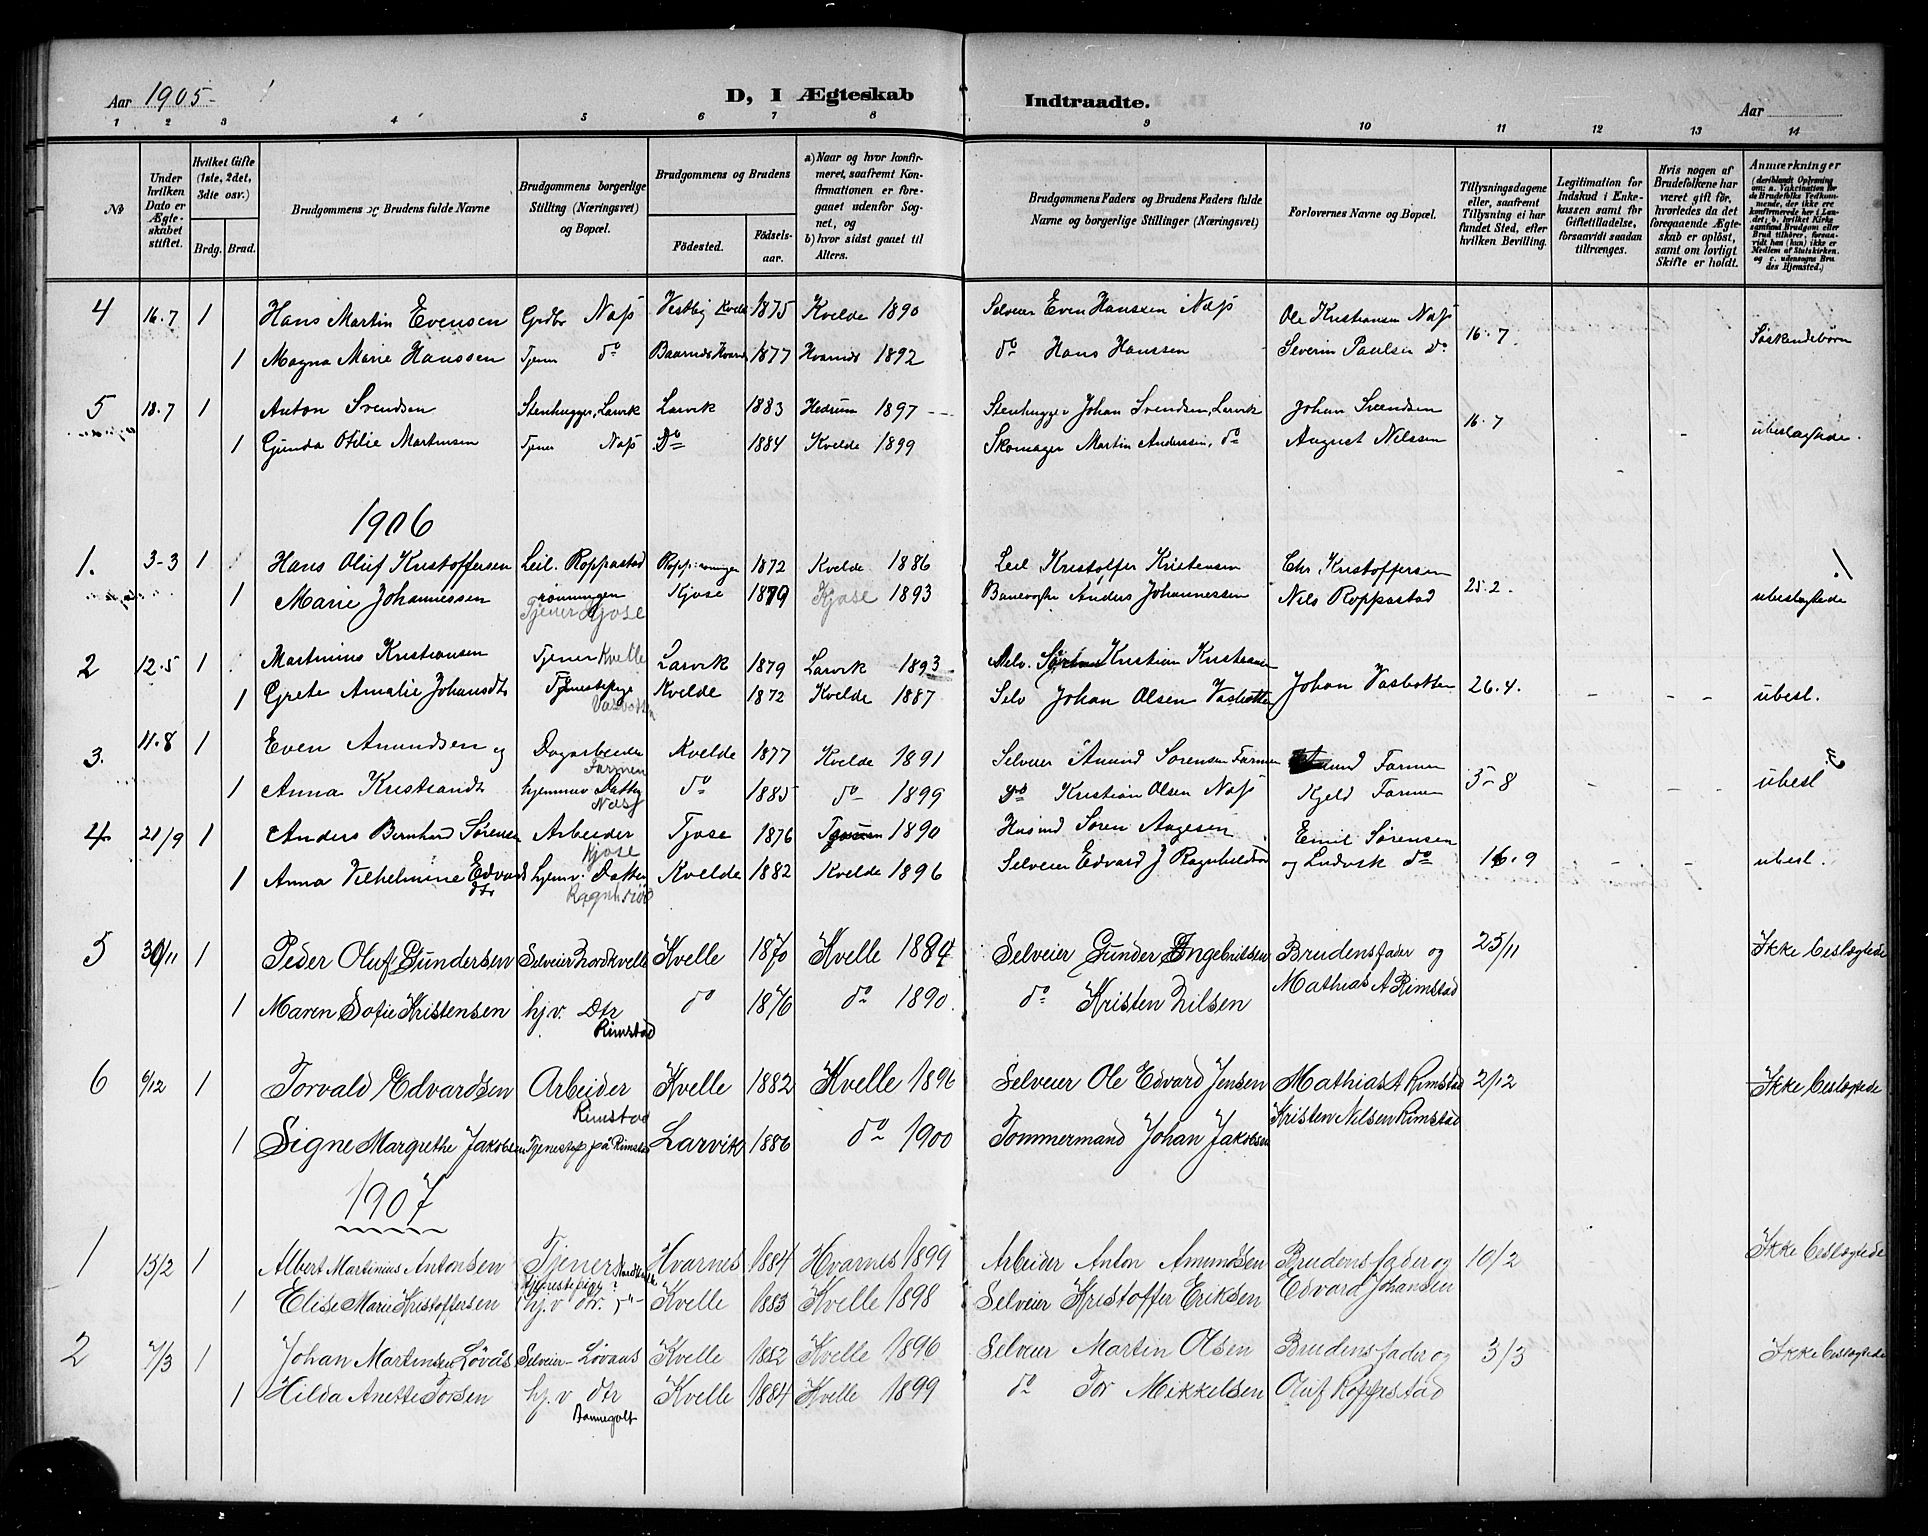 Aar 1905 D, I Ægteskab Indtraadte. Aar
1 2 3 4 5 6 7 8 9 10 11 12 13 14
№ | Under hvilken Dato er Ægteskabet stiftet. | Hvilket Gifte (1ste, 2det, 3die osv.) Brdg. Brud. | Brudgommens og Brudens fulde Navne | Brudgommens borgerlige Stilling (Næringsvei) og Bopæl. | Brudgommens og Brudens Fødested. Fødselsaar. | a) Naar og hvor konfirmeret, saafremt Konfirmationen er foregaaet udenfor Sognet, og b) hvor sidst gaaet til Alters. | Brudgommens Faders og Brudens Faders fulde Navne og borgerlige Stillinger (Næringsvei) | Forlovernes Navne og Bopæl. | Tillysningsdagene eller, saafremt Tillysning ei har fundet Sted, efter hvilken Bevilling. | Legitimation for Indskud i Enkekassen samt for Giftetilladelse, forsaavidt saadan tiltrænges. | Hvis nogen af Brudefolkene har været gift før, hvorledes da det foregaaende Ægteskab er opløst, samt om lovligt Skifte er holdt. | Anmærkninger
4 16.7 1 Hans Martin Evensen Grdbr Næss Vestby Kvelde 1875 Kvelde 1890 Selveier Even Hanssen Næss Ole Kristiansen Næss 16.7 Søskendebørn
1 Magna Marie Hanssen Tjener do Hvarnes 1877 Hvarnes 1892 do Hans Hanssen Severin Paulsen do
5 18.7 1 Anton Svendsen Stenhugger, Larvik Larvik 1883 Hedrum 1897 Stenhugger Johan Svendsen, Larvik Johan Svendsen 16.7 ubeslægtede.
1 Gunda Otilie Martinsen Tjener Næss Do 1884 Kvelde 1899 Skomager Martin Anderssen, do August Nilssen
1906
1. 3-3 1 Hans Oluf Kristoffersen Leil. Roppastad rønningen 1872 Kvelde 1886 Leil Kristoffer Kristensen Chr. Kristoffersen 25.2. ubeslægtede
1 Marie Johannessen Tjener Kjose Kjose 1879 Kjose 1893 Banevogter Anders Johannessen Nils Roppastad
2 12.5 1 Martinius Kristiansen Tjener Kvelle Larvik 1879 Larvik 1893 Selv. Kristian Kristiansen Johan Vasbotten 26.4. ubesl.
1 Grete Amalie Johansdtr Tjenestepige Vasbotten Kvelde 1872 Kvelde 1887 Selv Johan Olsen Vasbotten
3. 11.8 1 Even Amundsen og Dagarbeider Farmen Kvelde 1877 Kvelde 1891 Selveier Amund Sørensen Farmen Amund Farmen 5-8 ubesl
1 Anna Kristiansdtr hjemmev. Datter Næss do 1885 do 1899 do Kristian Olsen Næss Kjeld Farmen
4. 21/9 1 Anders Bernhard Sørensen Arbeider Kjose Tjose 1876 1890 Husmd Søren Aagesen Emil Sørensen 16.9 ubesl.
1 Anna Vilhelmine Edvardsdtr hjemv. Datter Kvelde 1882 Kvelde 1896 Selveier Edvard J og Ludvik do
5 30/11 1 Peder Oluf Gundersen Selveier Nordkvelle Kvelle 1870 Kvelle 1884 Selveier Gunder Engebritsen Brudens fader og 25/11 Ikke beslægtede
1 Maren Sofie Kristensen hj.v. Dtr Rimstad do 1876 do 1890 do Kristen Nilsen Mathias A Rimstad
6 6/12 1 Torvald Edvardsen Arbeider Rimstad Kvelle 1882 Kvelle 1896 Selveier Ole Edvard Jensen Mathias A Rimstad 2/12 Ikke beslægtede
1 Signe Margrethe Jakobsen Tjenestep. på Rimstad Larvik 1886 do 1900 Tømmermand Johan Jakobsen Kristen Nilsen Rimstad
1907
1 15/2 1 Albert Martinius Antonsen Tjener Nordkvelle Hvarnes 1884 Hvarnes 1899 Arbeider Anton Amundsen Brudens fader og 10/2 Ikke beslægtede
1 Elise Marie Kristoffersen tjenestepige? hj.v dtr. Kvelle 1883 Kvelle 1898 Selveier Kristoffer Eriksen Edvard Johansen
2 7/3 1 Johan Martinsen Løvås Selveier Løvaas Kvelle 1882 Kvelle 1896 Selveier Martin Olsen Brudens fader og 3/3 Ikke beslægtede
1 Hilda Anette Torsen hj.v dtr Bonnegolt Kvelle 1884 Kvelle 1899 do Tor Mikkelsen Oluf Roppestad